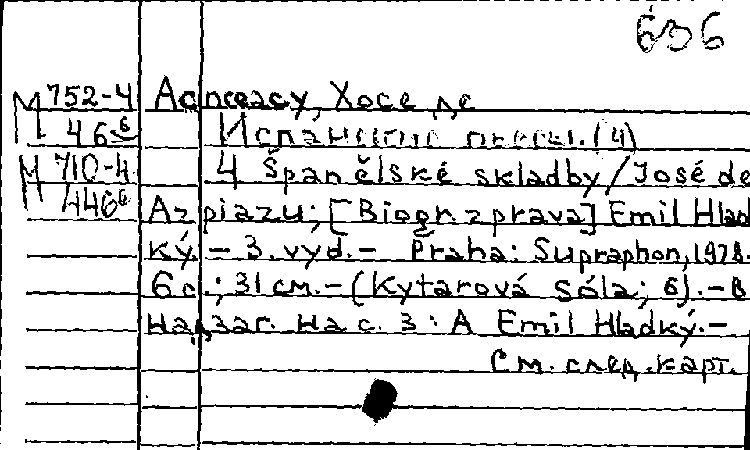 636
М 752-4 Аспиазу, Хосе де
46б Испанские пьесы. (4)
М 710-4 4 Španělské skladby / José de
446б Azpiazu; [Biogr. zprava] Emil Hlad
ký. - 3. vyd. - Praha: Supraphon, 1978.
6 с.; 31 см. - (Kytarová sóla; 6). - В
надзаг. на с. 3: A Emil Hladký. -
См. след. карт.